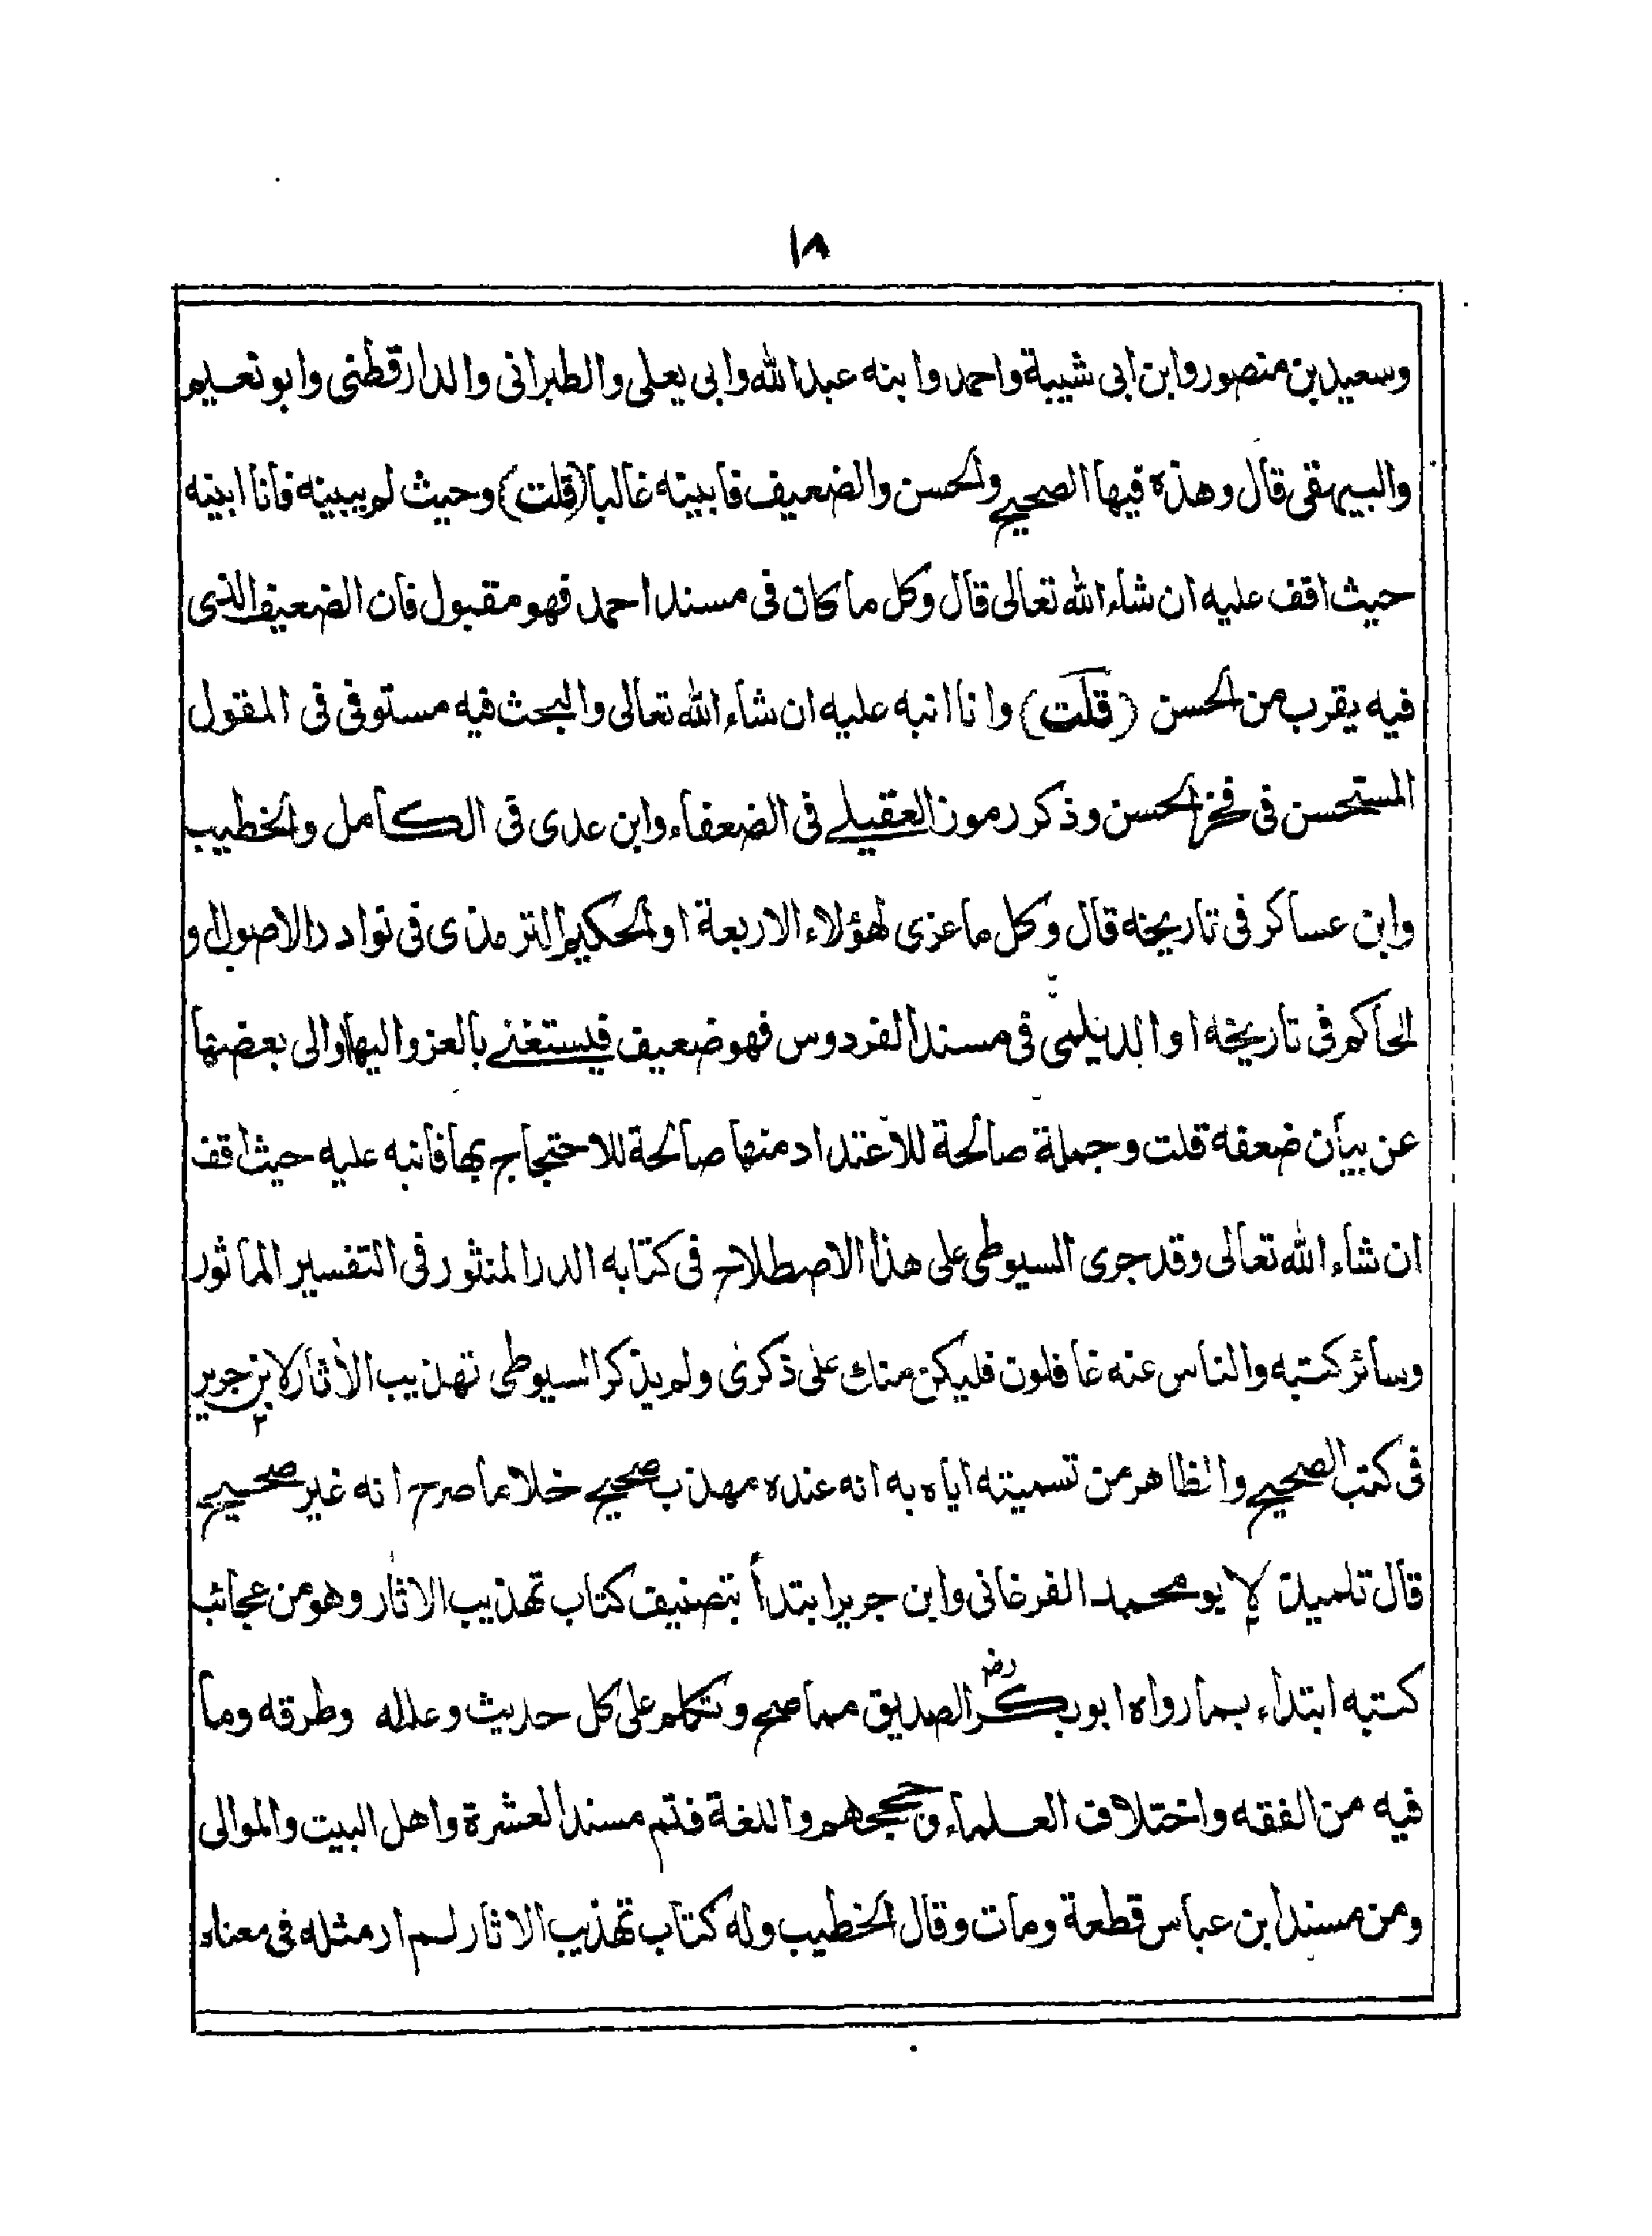 ١٨
وسعيد بن منصور وابن ابى شيبة واحمد وابنه عبد الله وابى يعلى والطبرانى والدارقطنى وابو نعيم
والبيهقى قال وهذه فيها الصحيح والحسن والضعيف فابينه غالبا (قلت) وحيث لم يبينه فانا ابينه
حيث اقف عليه ان شاء الله تعالى قال وكل ما كان فى مسند احمد فهو مقبول فان الضعيف الذى
فيه يقرب من الحسن (قلت) وانا انبه عليه ان شاء الله تعالى والبحث فيه مستوفى فى المقول
المستحسن فى فخر الحسن وذكر رموز العقيلے فى الضعفاء وابن عدى فى الكامل والخطيب
وابن عساكر فى تاريخه قال وكل ما عزى لهؤلاء الاربعة او الحكيم الترمذى فى نوادر الاصول و
الحاكم فى تاريخه او الديلمى فى مسند الفردوس فهو ضعيف فليستغنے بالعزو اليها او الى بعضها
عن بيان ضعفه قلت وجملة صالحة للاعتداد منها صالحة للاحتجاج بها فانبه عليه حيث اقف
ان شاء الله تعالى وقد جرى السيوطى على هذا الاصطلاح فى كتابه الدر المنثور فى التفسير الماثور
وسائر كتبه والناس عنه غافلون فليكن منك على ذكرى ولم يذكر السيوطى تهذيب الأثار لابن جرير
فى كتب الصحيح والظاهر من تسميته اياه به انه عنده مهذب صحيح خلا ما صرح انه غير صحيح
قال تلميذه ابو محمد الفرغانى وابن جرير ابتدأ بتصنيف كتاب تهذيب الاثار وهو من عجائب
كتبه ابتداء بما رواه ابو بكر رض الصديق مما صح وتكلم على كل حديث وعلله وطرقه وما
فيه من الفقه واختلاف العلماء وحججهم واللغة فتم مسند العشرة واهل البيت والموالى
ومن مسند ابن عباس قطعة ومات وقال الخطيب وله كتاب تهذيب الاثار لم ار مثله فى معناه